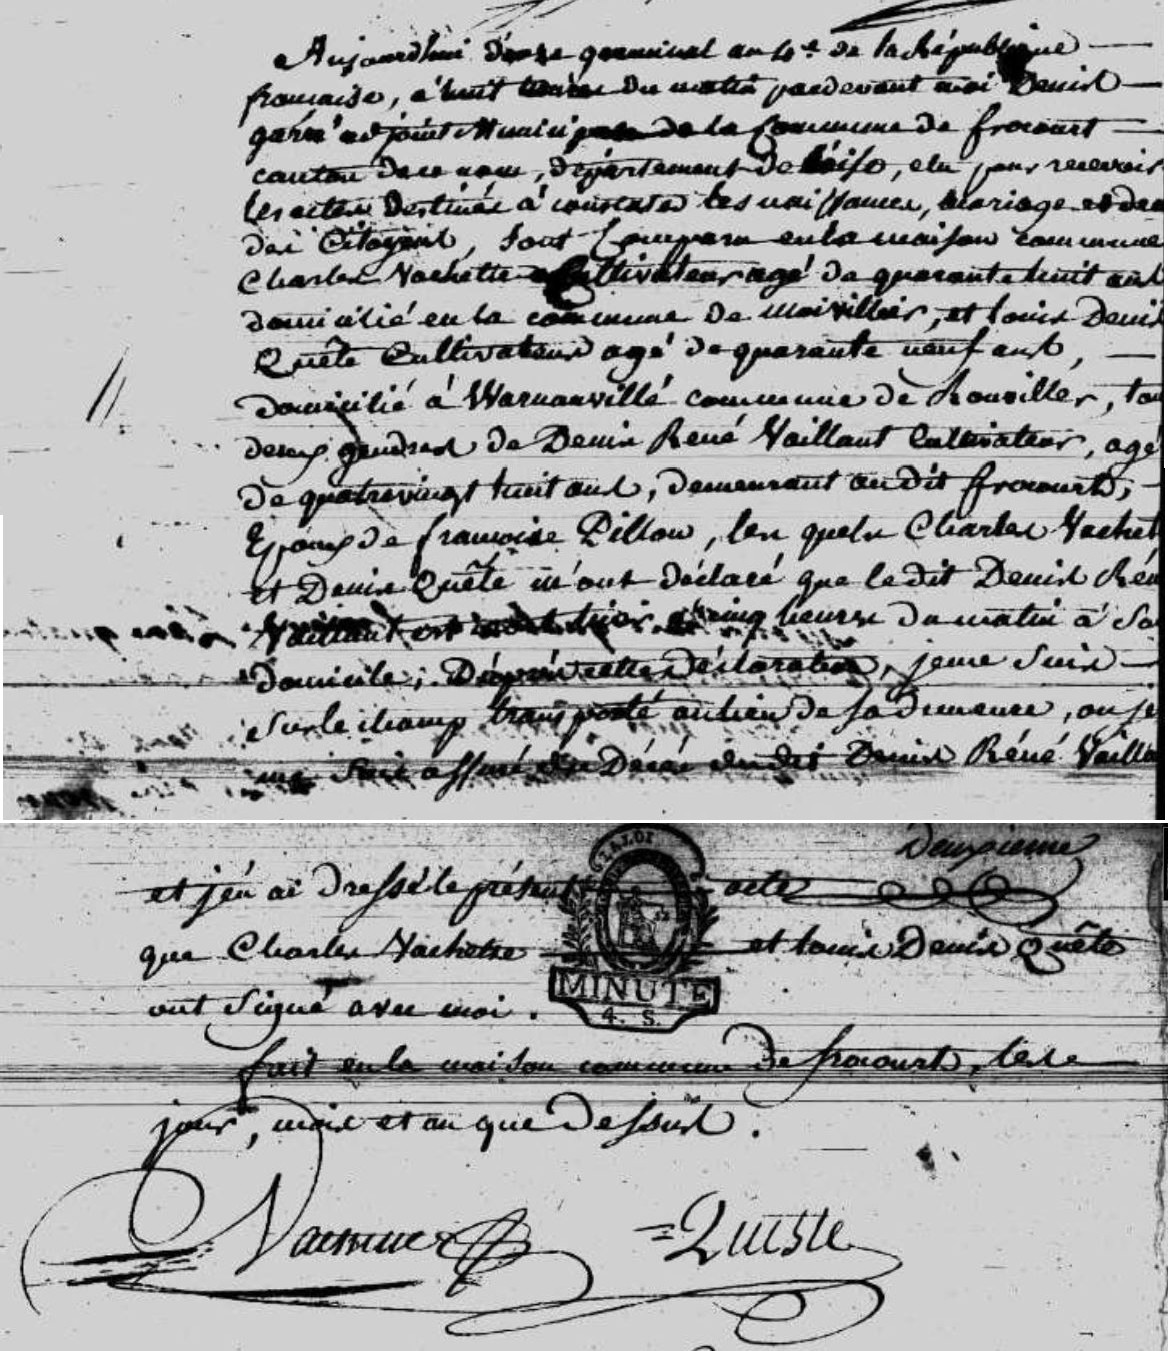 Aujourd'hui onze germinal an 4e de la République
francaise, a huit heures du matin pardevant moi Denis
garré adjoint Municipale de la Commune de frocourt
canton de ce nom, département de l'oise, elu pour recevoir
les actes destinés à constater les naissances, Mariage et deces
des Citoyens, sont Comparu en la maison commune
Charles Vachette Cultivateur agé de quarante huit ans
domicilié en la commune de moivillers, et louis Denis
Quête Cultivateur agé de quarante neuf ans,
domicilié à Warnanvillé commune de Rouviller, tou
deux gendres de Denis René Vaillant Cultivateur, agé
de quatrevingt huit ans, demeurant au dit frocourt,
Epoux de francoise Pillon, les quels Charles Vachet
et Denis Quête m'ont déclaré que le dit Denis Rén
Vaillant est mort hier, a cinq heures du matin à so
domicile; D'après cette déclaration, je me suis
sur le champ transporté au lieu de sa demeure, ou je
me suis assuré du Décès du dit Denis Réné Vailla
deuxieme
et j'en ai dressé le présent acte
que Charles Vachette et louis Denis Quête
ont signé avec moi.
LA LOI
MINUTE
4. S.
fait en la maison commune de frocourt, les
jour, mois et an que Dessus.
Quiste